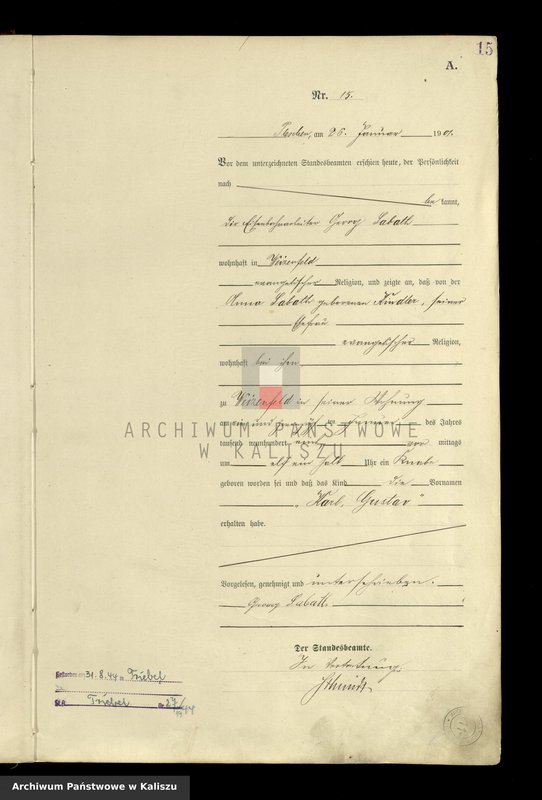 15
A.
Nr. 15.
am 26. Januar 1901.
Vor dem unterzeichneten Standesbeamten erschien heute, der Persönlichkeit
nach
be kannt,
der Eisenbahnarbeiter Georg Labath
wohnhaft in Weizenfeld
evangelischer Religion, und zeigte an, daß von der
Anna Labath geborenen Kindler, seiner
Ehefrau
evangelischer Religion,
wohnhaft bei ihm
zu Weizenfeld in seiner Wohnung
am ein und zwanzigsten Januar des Jahres
tausend neunhundert eins vor mittags
um elf ein halb Uhr ein Knabe
geboren worden sei und daß das Kind die Vornamen
„Karl, Gustav"
erhalten habe.
Vorgelesen, genehmigt und unterschrieben.
Georg Labath.
Der Standesbeamte.
In Vertretung.
Schmidt
Gestorben am 31.8.44 in Triebel
St.A. Triebel Nr. 27/1944
ARCHIWUM PAŃSTWOWE
W KALISZU
Archiwum Państwowe w Kaliszu